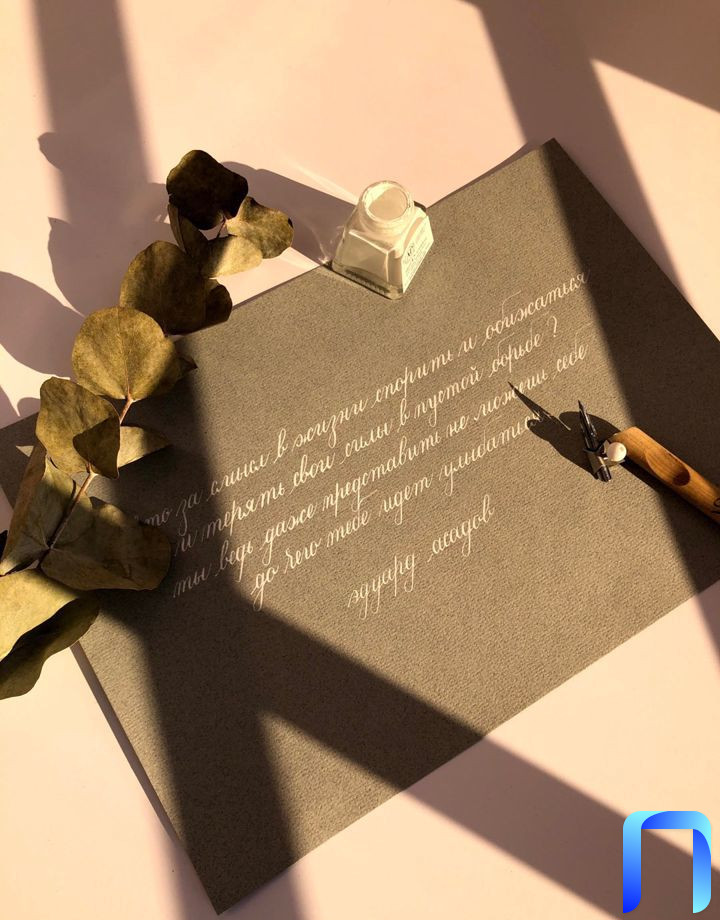 что за смысл в жизни спорить и обижаться
и терять свои силы в пустой борьбе ?
ты ведь даже представить не можешь себе
до чего тебе идет улыбаться
эдуард асадов